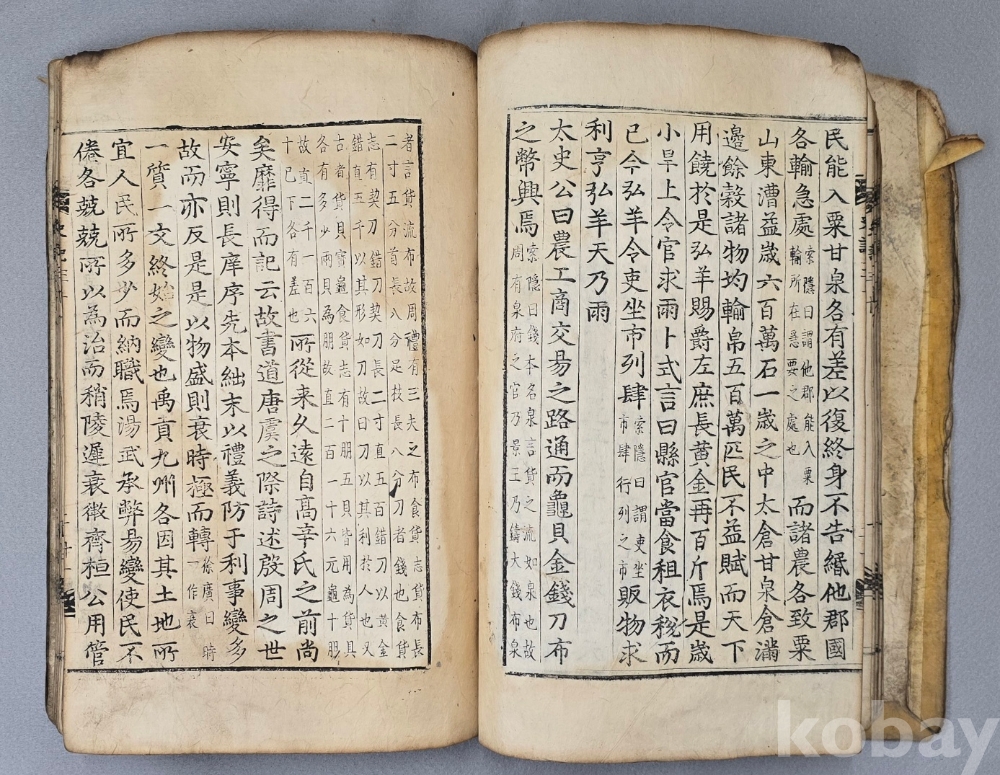 民能入粟甘泉各有差以復終身不告緡他郡國
各輸急處索隱曰謂他郡能入粟輸所在急要之處也而諸農各致粟
山東漕益歲六百萬石一歲之中太倉甘泉倉滿
邊餘穀諸物均輸帛五百萬匹民不益賦而天下
用饒於是弘羊賜爵左庶長黃金再百斤焉是歲
小旱上令官求雨卜式言曰縣官當食租衣稅而
已今弘羊令吏坐市列肆索隱曰謂吏坐市肆行列之市販物求
利亨弘羊天乃雨
太史公曰農工商交易之路通而龜貝金錢刀布
之幣興焉索隱曰錢本名泉言貨之流如泉也故周有泉府之官乃景王乃鑄大錢布泉
者言貨流布故周禮有三夫之布食貨志貨布長
二寸五分首長八分足枝長八分刀者錢也食貨
志有契刀錯刀契刀長二寸直五百錯刀以黃金
錯直五千以其形如刀故曰刀以其利於人也又
古者貨貝寶龜食貨志有十朋五貝皆用為貨其
各有多少兩貝為朋故直二百一十六元龜十朋
故直二千一百六十已下各有差也所從来久遠自高辛氏之前尚
矣靡得而記云故書道唐虞之際詩述殷周之世
安寧則長庠序先本絀末以禮義防于利事變多
故而亦反是是以物盛則衰時極而轉徐廣曰時一作衰
一質一文終始之變也禹貢九州各因其土地所
宜人民所多少而納職焉湯武承弊易變使民不
倦各兢兢所以為治而稍陵遲衰微齊桓公用管
kobay